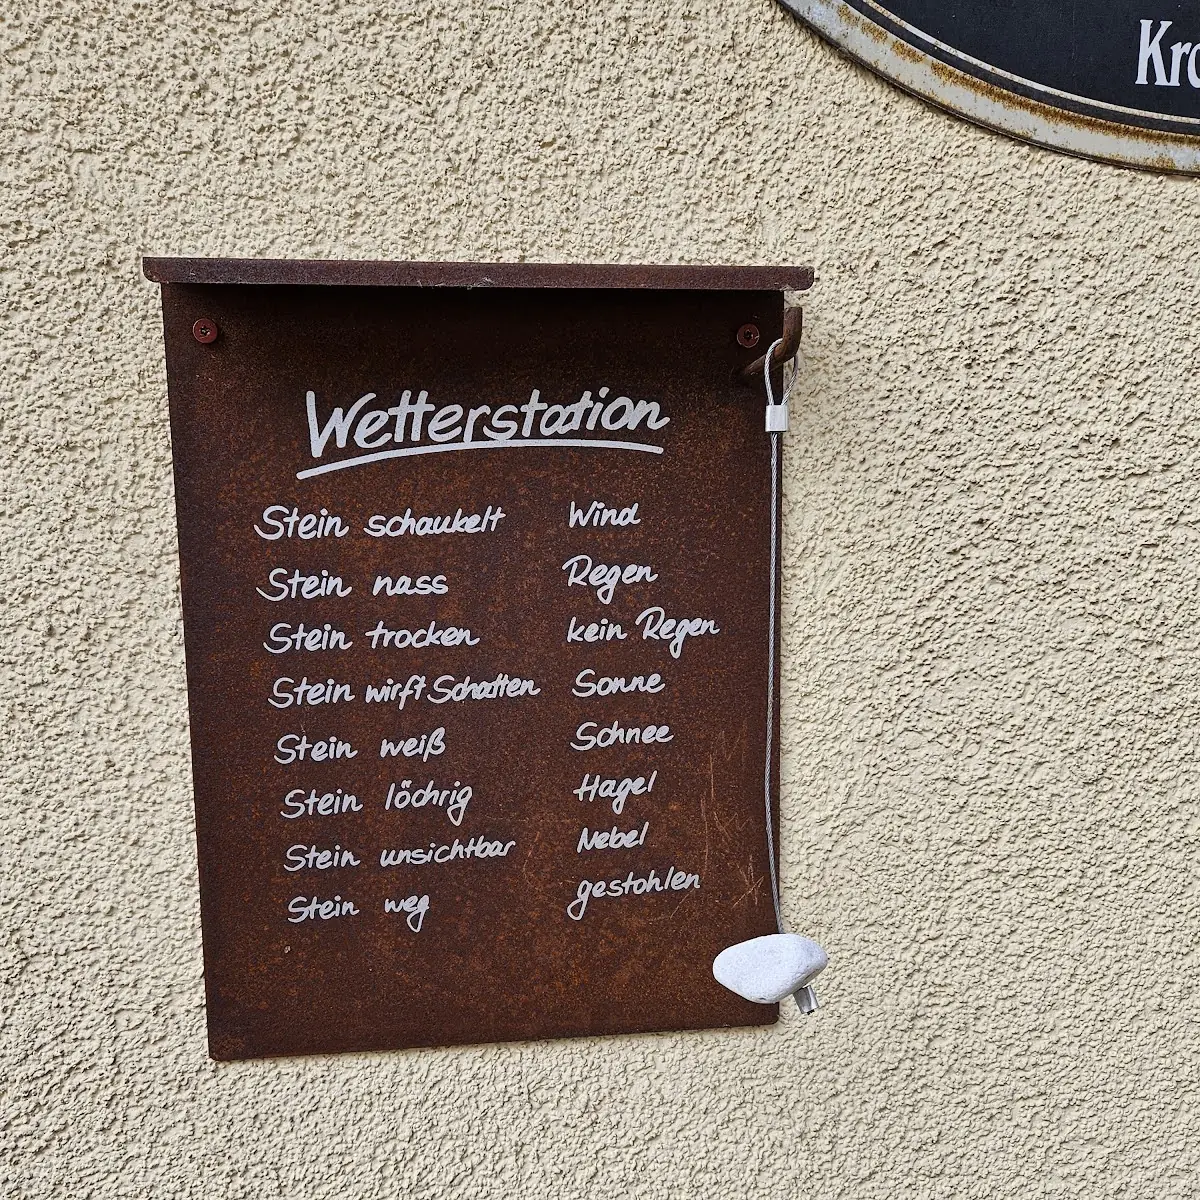 Kro
Wetterstation
Stein schaukelt Wind
Stein nass Regen
Stein trocken kein Regen
Stein wirft Schatten Sonne
Stein weiß Schnee
Stein löchrig Hagel
Stein unsichtbar Nebel
Stein weg gestohlen